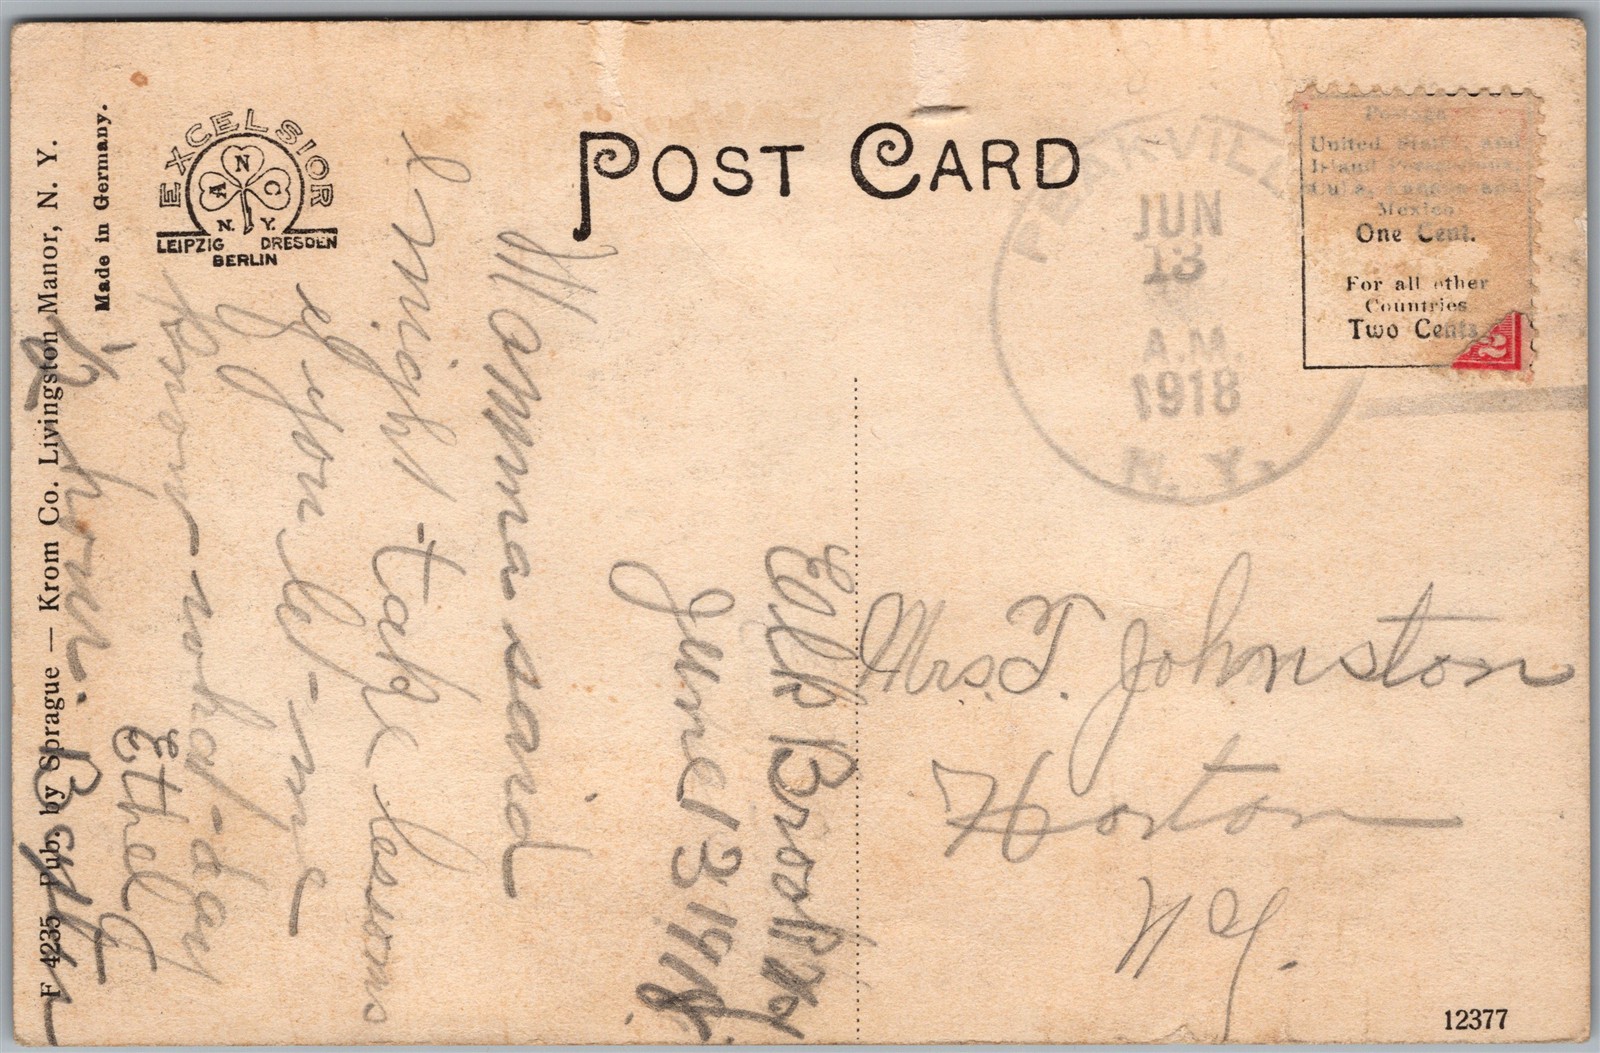 POST CARD
EXCELSIOR
A N C
N. Y.
LEIPZIG DRESDEN
BERLIN
Made in Germany.
F 4235 Pub. by Sprague — Krom Co. Livingston Manor, N. Y.
JUN
13
A M
1918
N. Y.
Postage
United States and
Island Possessions,
Cuba, Canada and
Mexico
One Cent.
For all other
Countries
Two Cents
2
Elk Brook
June 13 1918
Momma said
I might take lessons
if you let me
know what day
& hour.
Ethel
Mrs. T. Johnston
Horton
N.Y.
12377